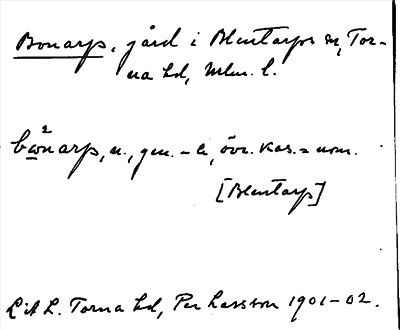 Bonarp, gård i Blentarps sn, Tor-
na hd, Mlm. l.
bωnarp, n., gen. -a, övr. kas. = nom.
[Blentarp]
Lit L. Torna hd, Per Larsson 1901-02.